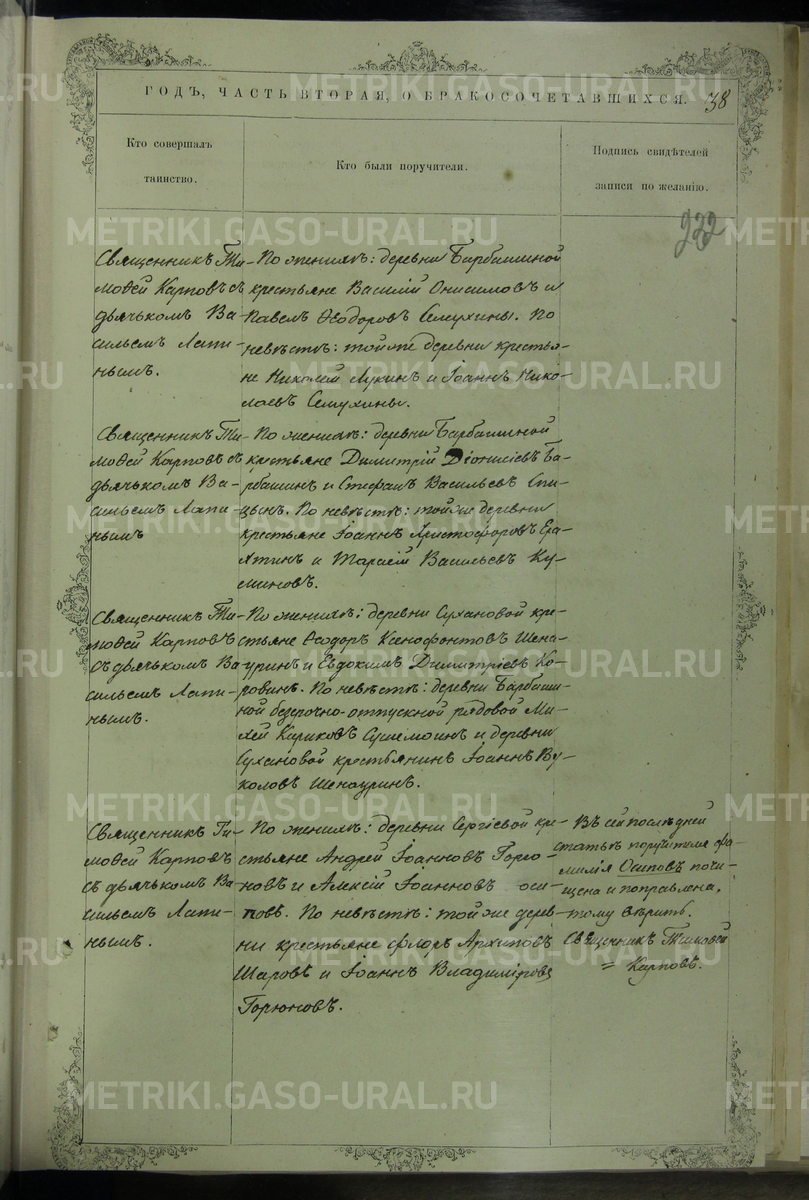 ГОДЪ, ЧАСТЬ ВТОРАЯ, О БРАКОСОЧЕТАВШИХСЯ.
38
Кто совершалъ
таинство.
Кто были поручители.
Подпись свидѣтелей
записи по желанію.
232
Священникъ Ти-
моѳей Карповъ съ
дьячькомъ Ва-
сильемъ Лапи-
нымъ.
По женихѣ: деревни Барбашиной
крестьяне Василій Онисимовъ и
Павелъ Ѳеодоровъ Семухины. По
невѣстѣ: той же деревни крестья-
не Николай Лукинъ и Іоаннъ Нико-
лаевъ Семухины.
Священникъ Ти-
моѳей Карповъ съ
дьячькомъ Ва-
сильемъ Лапи-
нымъ
По женихѣ: деревни Барбашиной
крестьяне Димитрій Діонисіевъ Ба-
рбашинъ и Стефанъ Васильевъ Спи-
цынъ. По невѣстѣ: той же деревни
крестьяне Іоаннъ Христофоровъ
и Тарасій Васильевъ Ку-
миновъ.
Священникъ Ти-
моѳей Карповъ
съ дьячькомъ Ва
сильемъ Лапи-
нымъ.
По женихѣ: деревни Сухановой кре-
стьяне Ѳеодоръ Ксенофонтовъ Шена-
уринъ и Евдокимъ Димитріевъ Ко-
ровинъ. По невѣстѣ: деревни Барбаши-
ной безсрочно-отпускной рядовой Ми-
хей и деревни
Сухановой крестьянинъ Іоаннъ Ву-
коловъ Шенауринъ.
Священникъ Ти-
моѳей Карповъ
съ дьячькомъ Ва
сильемъ Лапи-
нымъ.
По женихѣ: деревни Сергіевой кре-
стьяне Андрей Іоанновъ Горю-
новъ и Алексій Іоанновъ Оси-
повъ. По невѣстѣ: той же дерев-
ни крестьяне Флоръ Архиповъ
Шаровъ и Іоаннъ Владиміровъ
Горюновъ.
Въ сей послѣдней
статьѣ поручителя фа-
милія Осиповъ почи-
щена и поправлена,
тому вѣрить.
Священникъ Тимоѳей
= Карповъ.
METRIKI.GASO-URAL.RU